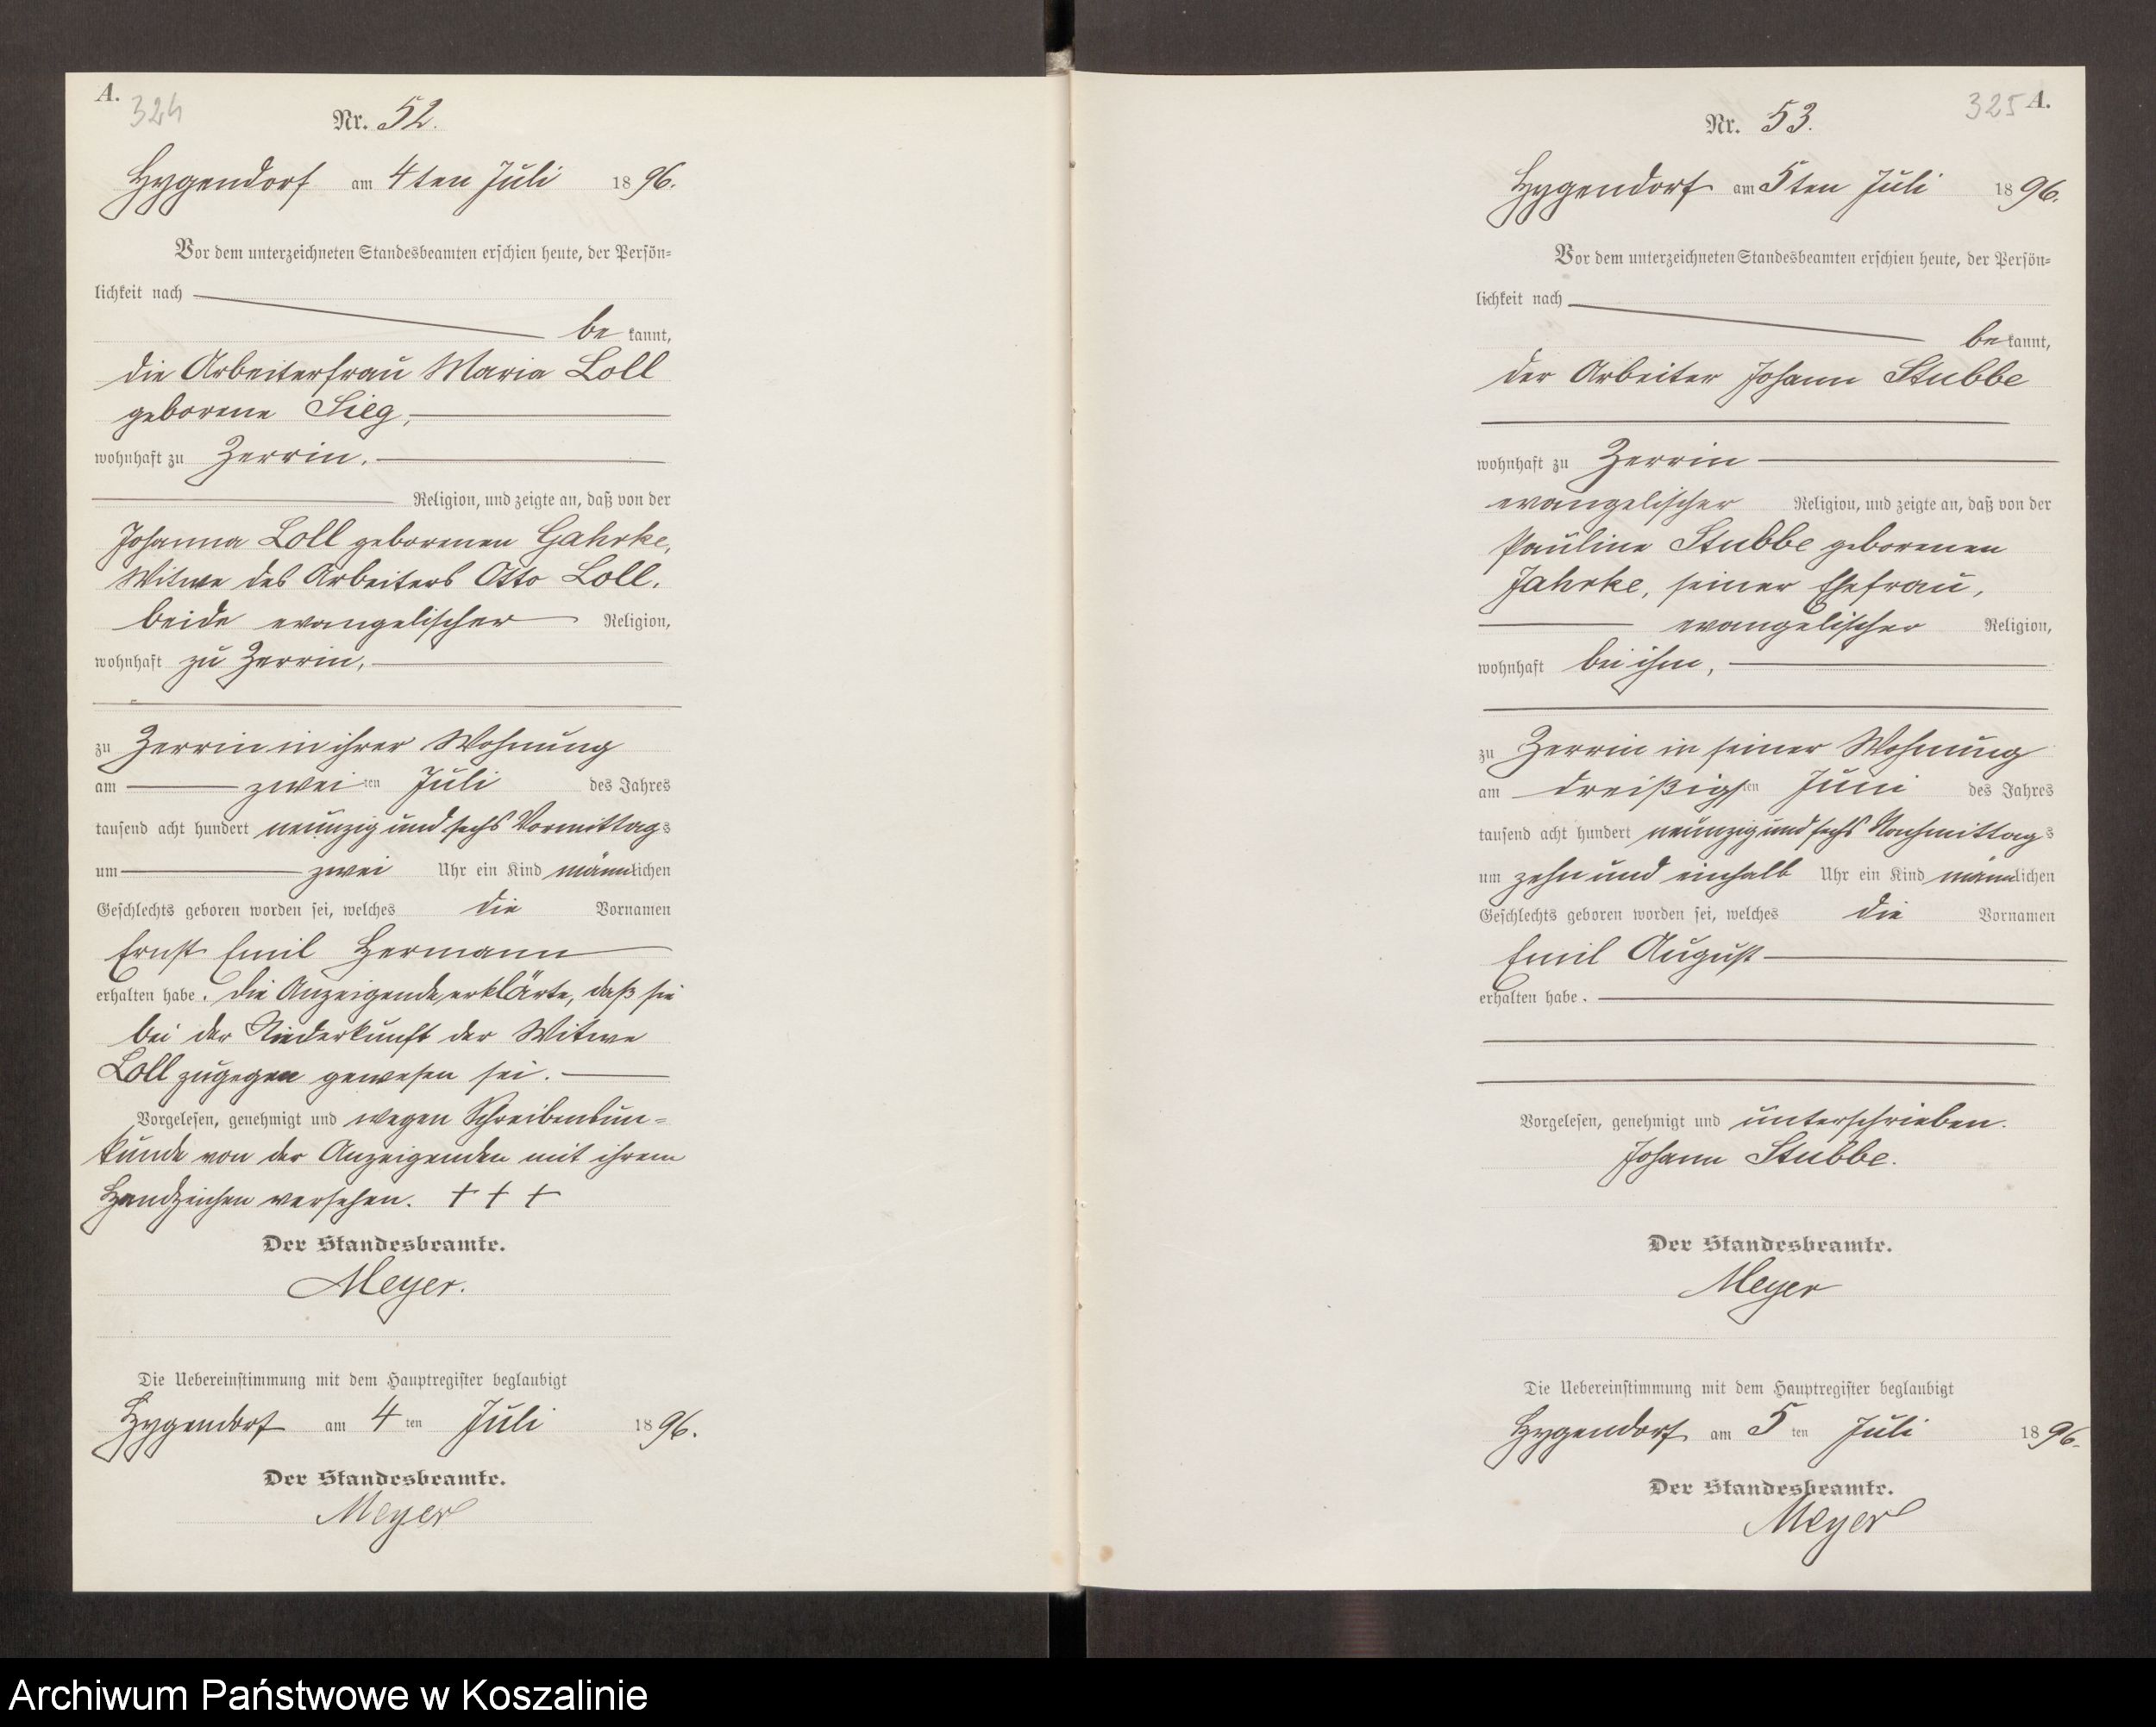 A.
324
Nr. 52.
Hygendorf am 4ten Juli 1896.
Vor dem unterzeichneten Standesbeamten erschien heute, der Persön-
lichkeit nach
bekannt,
die Arbeiterfrau Maria Loll
geborene Sieg,
wohnhaft zu Zerrin,
Religion, und zeigte an, daß von der
Johanna Loll geborenen Gahrke,
Witwe des Arbeiters Otto Loll,
beide evangelischer Religion,
wohnhaft zu Zerrin,
zu Zerrin in ihrer Wohnung
am zweiten Juli des Jahres
tausend acht hundert neunzig und sechs Vormittags
um zwei Uhr ein Kind männlichen
Geschlechts geboren worden sei, welches die Vornamen
Ernst Emil Hermann
erhalten habe. Die Anzeigende erklärte, daß sie
bei der Niederkunft der Witwe
Loll zugegen gewesen sei.
Vorgelesen, genehmigt und wegen Schreibensun-
kunde von der Anzeigenden mit ihrem
Handzeichen versehen. + + +
Der Standesbeamte.
Meyer.
Die Uebereinstimmung mit dem Hauptregister beglaubigt
Hygendorf am 4ten Juli 1896.
Der Standesbeamte.
Meyer
325 A.
Nr. 53.
Hygendorf am 5ten Juli 1896.
Vor dem unterzeichneten Standesbeamten erschien heute, der Persön-
lichkeit nach
bekannt,
der Arbeiter Johann Stubbe
wohnhaft zu Zerrin
evangelischer Religion, und zeigte an, daß von der
Pauline Stubbe geborenen
Jahrke, seiner Ehefrau,
evangelischer Religion,
wohnhaft bei ihm,
zu Zerrin in seiner Wohnung
am dreißigsten Juni des Jahres
tausend acht hundert neunzig und sechs Nachmittags
um zehn und einhalb Uhr ein Kind männlichen
Geschlechts geboren worden sei, welches die Vornamen
Emil August
erhalten habe.
Vorgelesen, genehmigt und unterschrieben.
Johann Stubbe.
Der Standesbeamte.
Meyer
Die Uebereinstimmung mit dem Hauptregister beglaubigt
Hygendorf am 5ten Juli 1896.
Der Standesbeamte.
Meyer
Archiwum Państwowe w Koszalinie